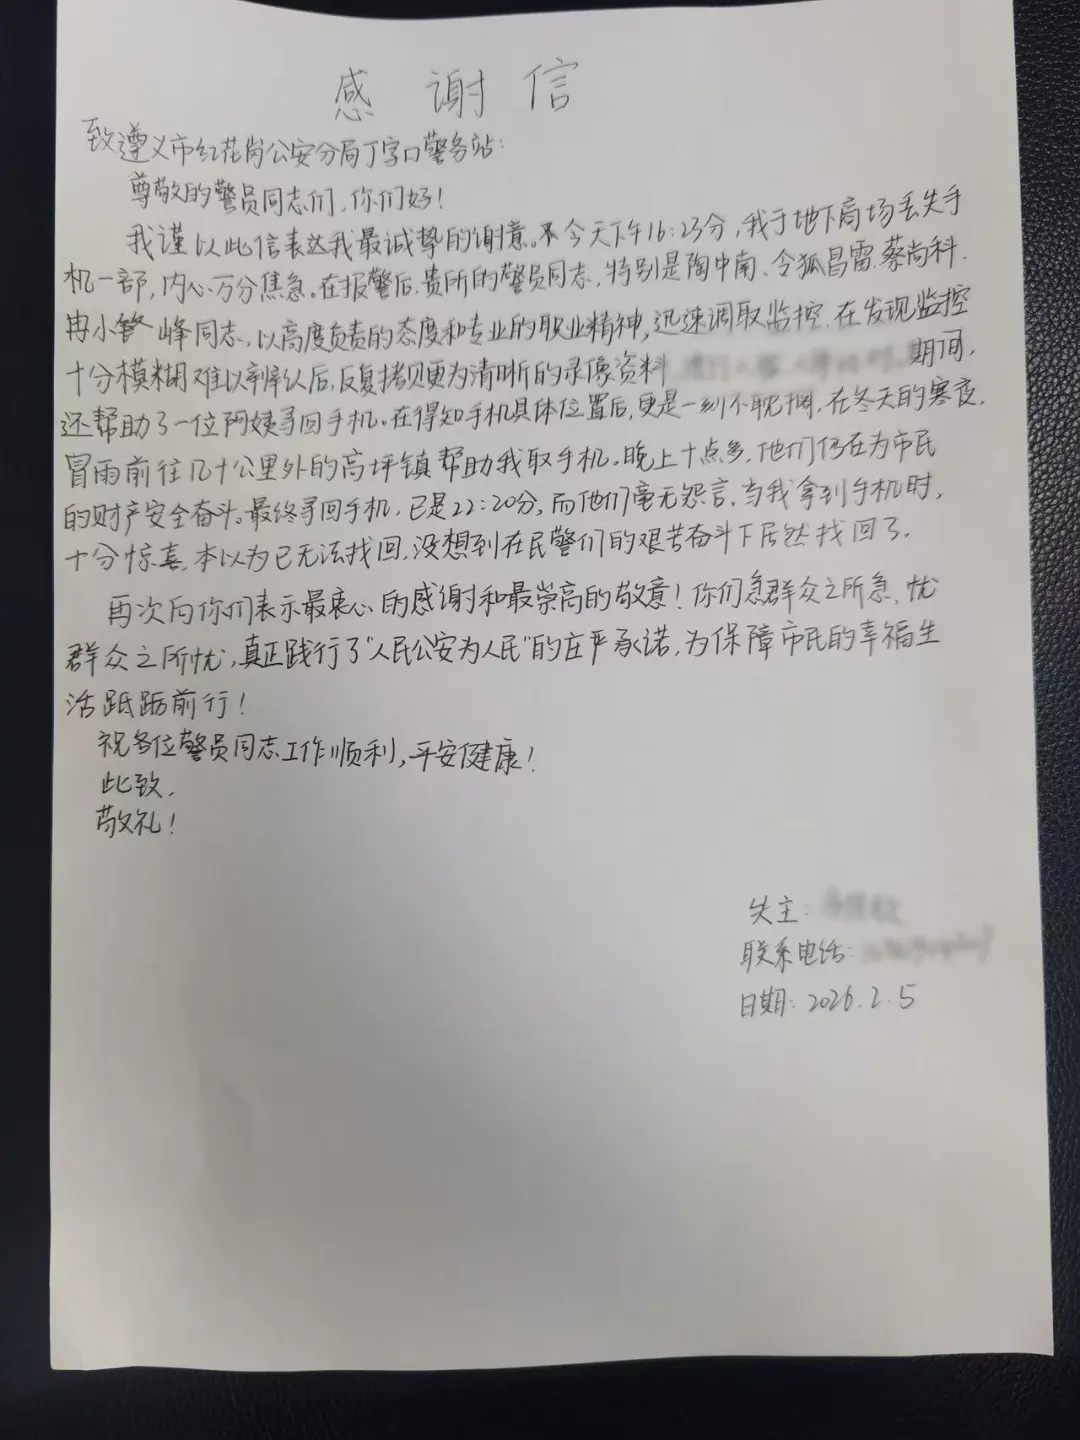 感谢信
致遵义市红花岗公安分局丁字口警务站:
尊敬的警员同志们,你们好!
我谨以此信表达我最诚挚的谢意。今天下午16:23分,我于地下商场丢失手
机一部,内心万分焦急。在报警后,贵所的警员同志,特别是陶中南、令狐昌雷、蔡尚科、
冉小峰同志,以高度负责的态度和专业的职业精神,迅速调取监控,在发现监控
十分模糊难以辨认后,反复拷贝更为清晰的录像资料 期间,
还帮助了一位阿姨寻回手机。在得知手机具体位置后,更是一刻不耽搁,在冬天的寒夜,
冒雨前往几十公里外的高坪镇帮助我取手机。晚上十点多,他们仍在为市民
的财产安全奋斗。最终寻回手机,已是22:20分,而他们毫无怨言,当我拿到手机时,
十分惊喜,本以为已无法找回,没想到在民警们的艰苦奋斗下居然找回了。
再次向你们表示最衷心的感谢和最崇高的敬意!你们急群众之所急,忧
群众之所忧,真正践行了“人民公安为人民”的庄严承诺,为保障市民的幸福生
活砥砺前行!
祝各位警员同志工作顺利,平安健康!
此致,
敬礼!
失主:
联系电话:
日期:2026.2.5